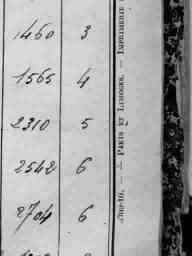 1460 3
1565 4
2310 5
2542 6
2704 6
— PARIS ET LIMOGES. — IMPRIMERIE